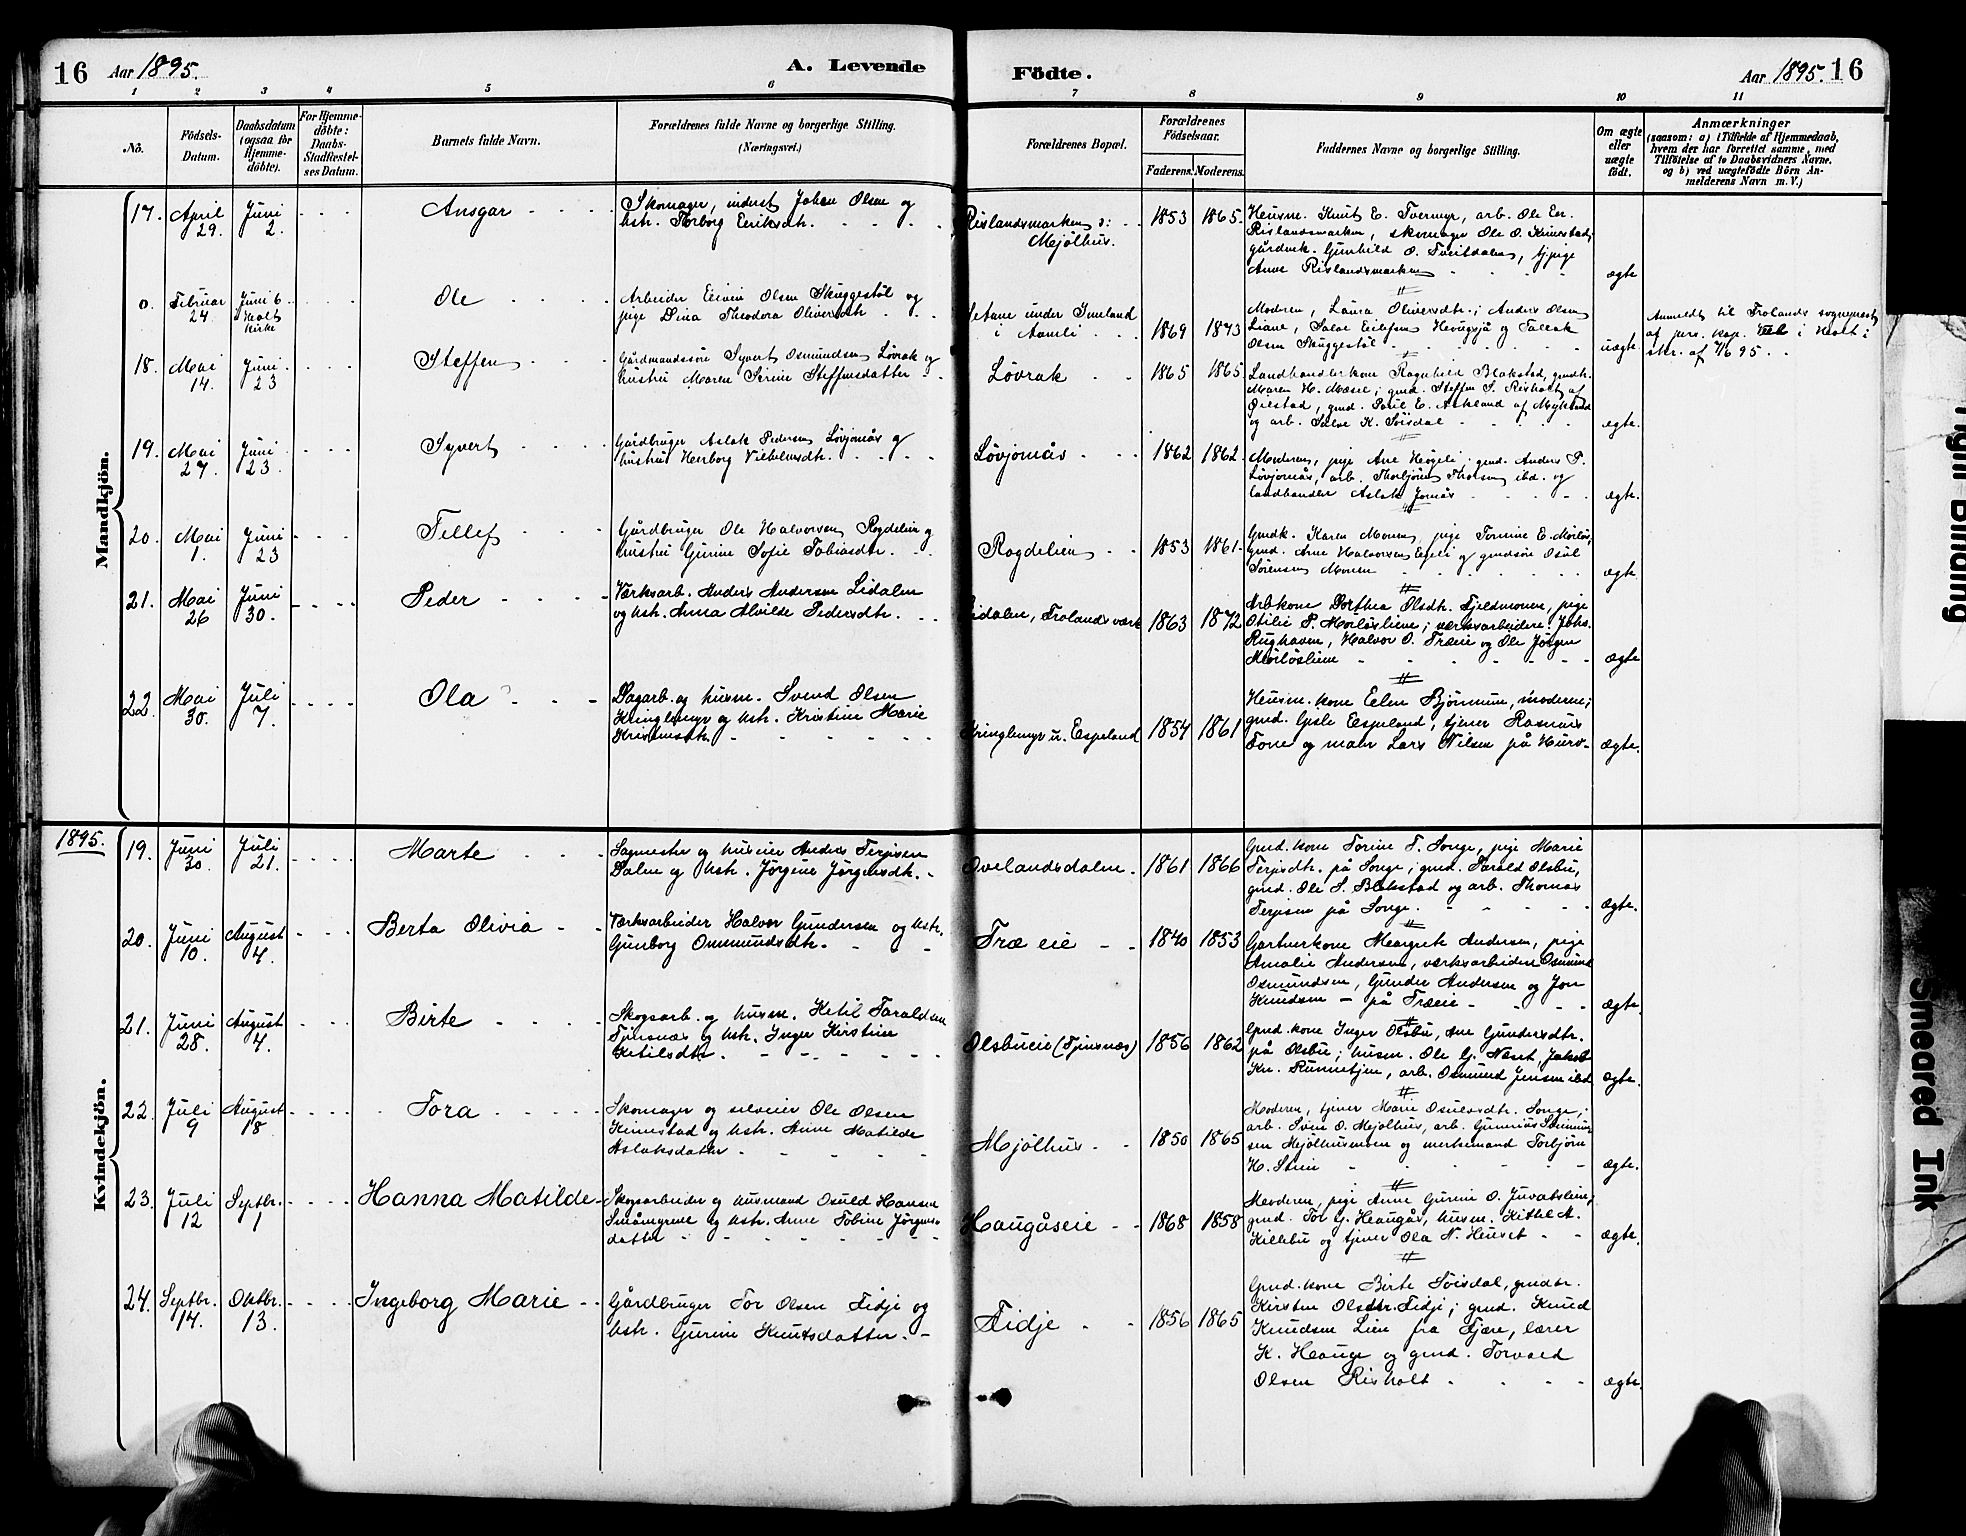 16 Aar 1895. A. Levende Födte. Aar 1895. 16
1 2 3 4 5 6 7 8 9 10 11
No.
Födsels-
Datum.
Daabsdatum
(ogsaa for
Hjemme-
døbte).
For Hjemme-
døbte:
Daabs-
Stadfæstel-
ses Datum.
Barnets fulde Navn.
Forældrenes fulde Navne og borgerlige Stilling.
(Næringsvei.)
Forældrenes Bopæl.
Forældrenes
Födselsaar.
Faderens. Moderens.
Faddernes Navne og borgerlige Stilling.
Om ægte
eller
uægte
födt.
Anmærkninger
(saasom: a) i Tilfælde af Hjemmedaab,
hvem der har forrettet samme, med
Tilföielse af to Daabsvidners Navne.
og b) ved uægtefödte Börn An-
melderens Navn m. V.)
Mandkjön.
17. April 29. Juni 2. Ansgar
Skomager, inderst Johan Olsen og
hstr. Torborg Eeriksdtr.
Rislandsmarken v:
Mjølhus.
1853 1865.
Husm. Knut E. Tvermyr, arb. Ole Er.
Rislandsmarken, skomager Ole O. Kinestad,
gårdbrk. Gunhild O. Tveitdalen, tj.pige
Anne Rislandsmarken
ægte
0. Februar 24. Juni 6 i Holt Kirke Ole
Arbeider Eivin Olsen Skuggestøl og
pige Dina Theodora Oliversdtr
under Smeland
i Aamli
1869 1873
Moderen, Laura Oliversdtr.; Anders Olsen
Liane, Salve Eilefsen Hevugsjå og Tallak
Olsen Skuggestøl
uægte
Anmeldt til Frolands sogneprest
af pers. kap. i Holt i
skr. af 7/6 95.
18. Mai 14. Juni 23 Steffen
Gårdmandssøn Syvert Osmundsen Løvrak og
hustru Maren Serine Steffensdatter
Løvrak
1865 1865
Landhandlerkone Ragnhild Blakstad, gmdk.
Maren H. Mæsel; gmd. Steffen S. Risholt af
Øiestad, gmd. Poul E. Askland af Mykland
og arb. Salve K. Søisdal
ægte.
19. Mai 27. Juni 23. Syvert
Gårdbruger Aslak Pedersen Løvjomås og
hustru Herborg Vilhelmsdtr.
Løvjomås
1862 1862.
Moderen, pige Ane Høgeli; gmd. Anders P.
Løvjomås, arb. Thorbjørn Thorsen ibd. og
landhandler Aslak Jomås
ægte.
20. Mai 1. Juni 23 Tellef
Gårdbruger Ole Halvorsen Rogdelien og
hustru Gurine Sofie Tobiasdtr.
Rogdelien
1853 1861.
Gmdk. Karen Monen, pige Tomine E. Mørløs,
gmd. Arne Halvorsen Espeli og gmdsøn Osul
Sørensen Monen
ægte
21. Mai 26 Juni 30. Peder
Værksarb. Anders Andersen Lidalen
og hstr. Anna Alvilde Pedersdtr.
Lidalen, Frolands værk
1863 1872
Arb.kone Dorthea Olsdtr. Fjeldmonen, pige
Otilie P. Mørløsliene; værksarbeidere: Johs.
Rughaven, Halvor O. Træeie og Ole Jørgen
Mørløsliene
ægte
22. Mai 30. Juli 7. Ola
Dagarb. og husm. Svend Olsen
Kringlemyr og hstr. Kristine Marie
Kristensdtr.
Kringlemyr u. Espeland
1854 1861
Husm.kone Eelen Bjørnmun, moderen;
gmd. Gisle Espeland, tjener Rasmus
Tone og maler Lars Nilsen på Hurv-
ægte.
1895.
Kvindekjön.
19. Juni 30. Juli 21. Marte
Sagmester og huseier Anders Terjesen
Dalen og hstr. Jørgine Jørgensdtr.
Ovelandsdalen.
1861 1866
Gmd.kone Torine T. Songe, pige Marie
Terjesdtr. på Songe; gmd. Tarald Olsbu,
gmd. Ole S. Blakstad og arb. Thomas
Terjesen på Songe.
ægte.
20. Juni 10. August 4. Berta Olivia
Værksarbeider Halvor Gundersen og hstr.
Gunborg Ommundsdtr.
Træeie
1840 1853
Gartnerkone Margrete Andersen, pige
Amalie Andersen, værksarbeidere Osmund
Osmundsen, Gunder Andersen og Jon
Knudsen - på Træeie
ægte.
21. Juni 28. August 4. Birte
Skogsarb. og husm. Ketil Taraldsen
Tjinsnæs og hstr. Inger Kirstine
Ketilsdtr.
Olsbueie (Tjinsnæs)
1856 1862
Gmd.kone Inger Olsbu, Ane Gundersdtr.
på Olsbu; husm. Ole G. Næset, Jakob
Kn. Runnetjen, arb. Osmund Jensen ibd
ægte.
22. Juli 9 August 18. Tora
Skomager og selveier Ole Olsen
Kinnestad og hstr. Anne Matilde
Aslaksdatter
Mjølhus
1850 1865
Moderen, tjener Marie Osulvsdtr. Songe;
arb. Sven O. Mjølhus, arb. Gunerius
sen Mjølhusmoen og merkemand Torbjørn
H. Stien
ægte.
23. Juli 12 Septbr. 1 Hanna Matilde
Skogsarbeider og husmand Osuld Hansen
Småmyrene og hstr. Anne Tobine Jørgens-
datter
Haugåseie
1868 1858
Moderen, pige Anne Gurine O. Juvatslien,
gmd. Tor G. Haugås, husm. Kittel A.
Killebu og tjener Ola N. Heuset
ægte.
24. Septbr. 14. Oktbr. 13. Ingeborg Marie
Gårdbruger Tor Olsen Fidje og
hstr. Gurine Knutsdatter.
Fidje
1856 1865
Gmd.kone Birte Søisdal, gmdtr.
Kirsten Olsdtr. Fidje; gmd. Knud
Knudsen Lien fra Fjære, lærer
K. Hauge og gmd. Torvald
Olsen Risholt
ægte.
Tight Binding
Smeared Ink